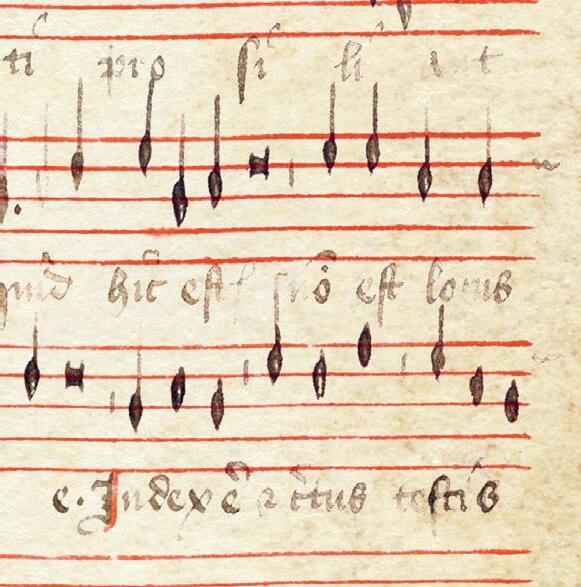 ti pro si li ant
hic est suo est locus
e. Index e᷃ ⁊ c᷃tus testis